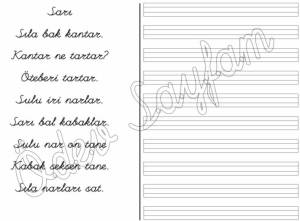 Sarı
Sıla bak kantar.
Kantar ne tartar?
Öteberi tartar.
Sulu iri narlar.
Sarı bal kabaklar.
Sulu nar on tane
Kabak seksen tane.
Sıla narları sat.
Ödev Sayfam